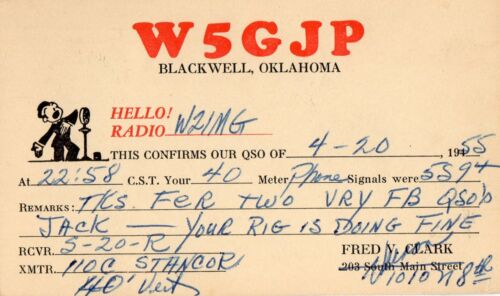 W5GJP
BLACKWELL, OKLAHOMA
HELLO!
RADIO W2IMG
THIS CONFIRMS OUR QSO OF 4-20 1955
At 22:58 C.S.T. Your 40 Meter Phone Signals were 5394
REMARKS: TKS FER TWO VRY FB QSO'S
JACK — YOUR RIG IS DOING FINE
RCVR. S-20-R FRED V. CLARK
XMTR. 110C STANCOR 203 South Main Street
40' Vert 1010 N 8th